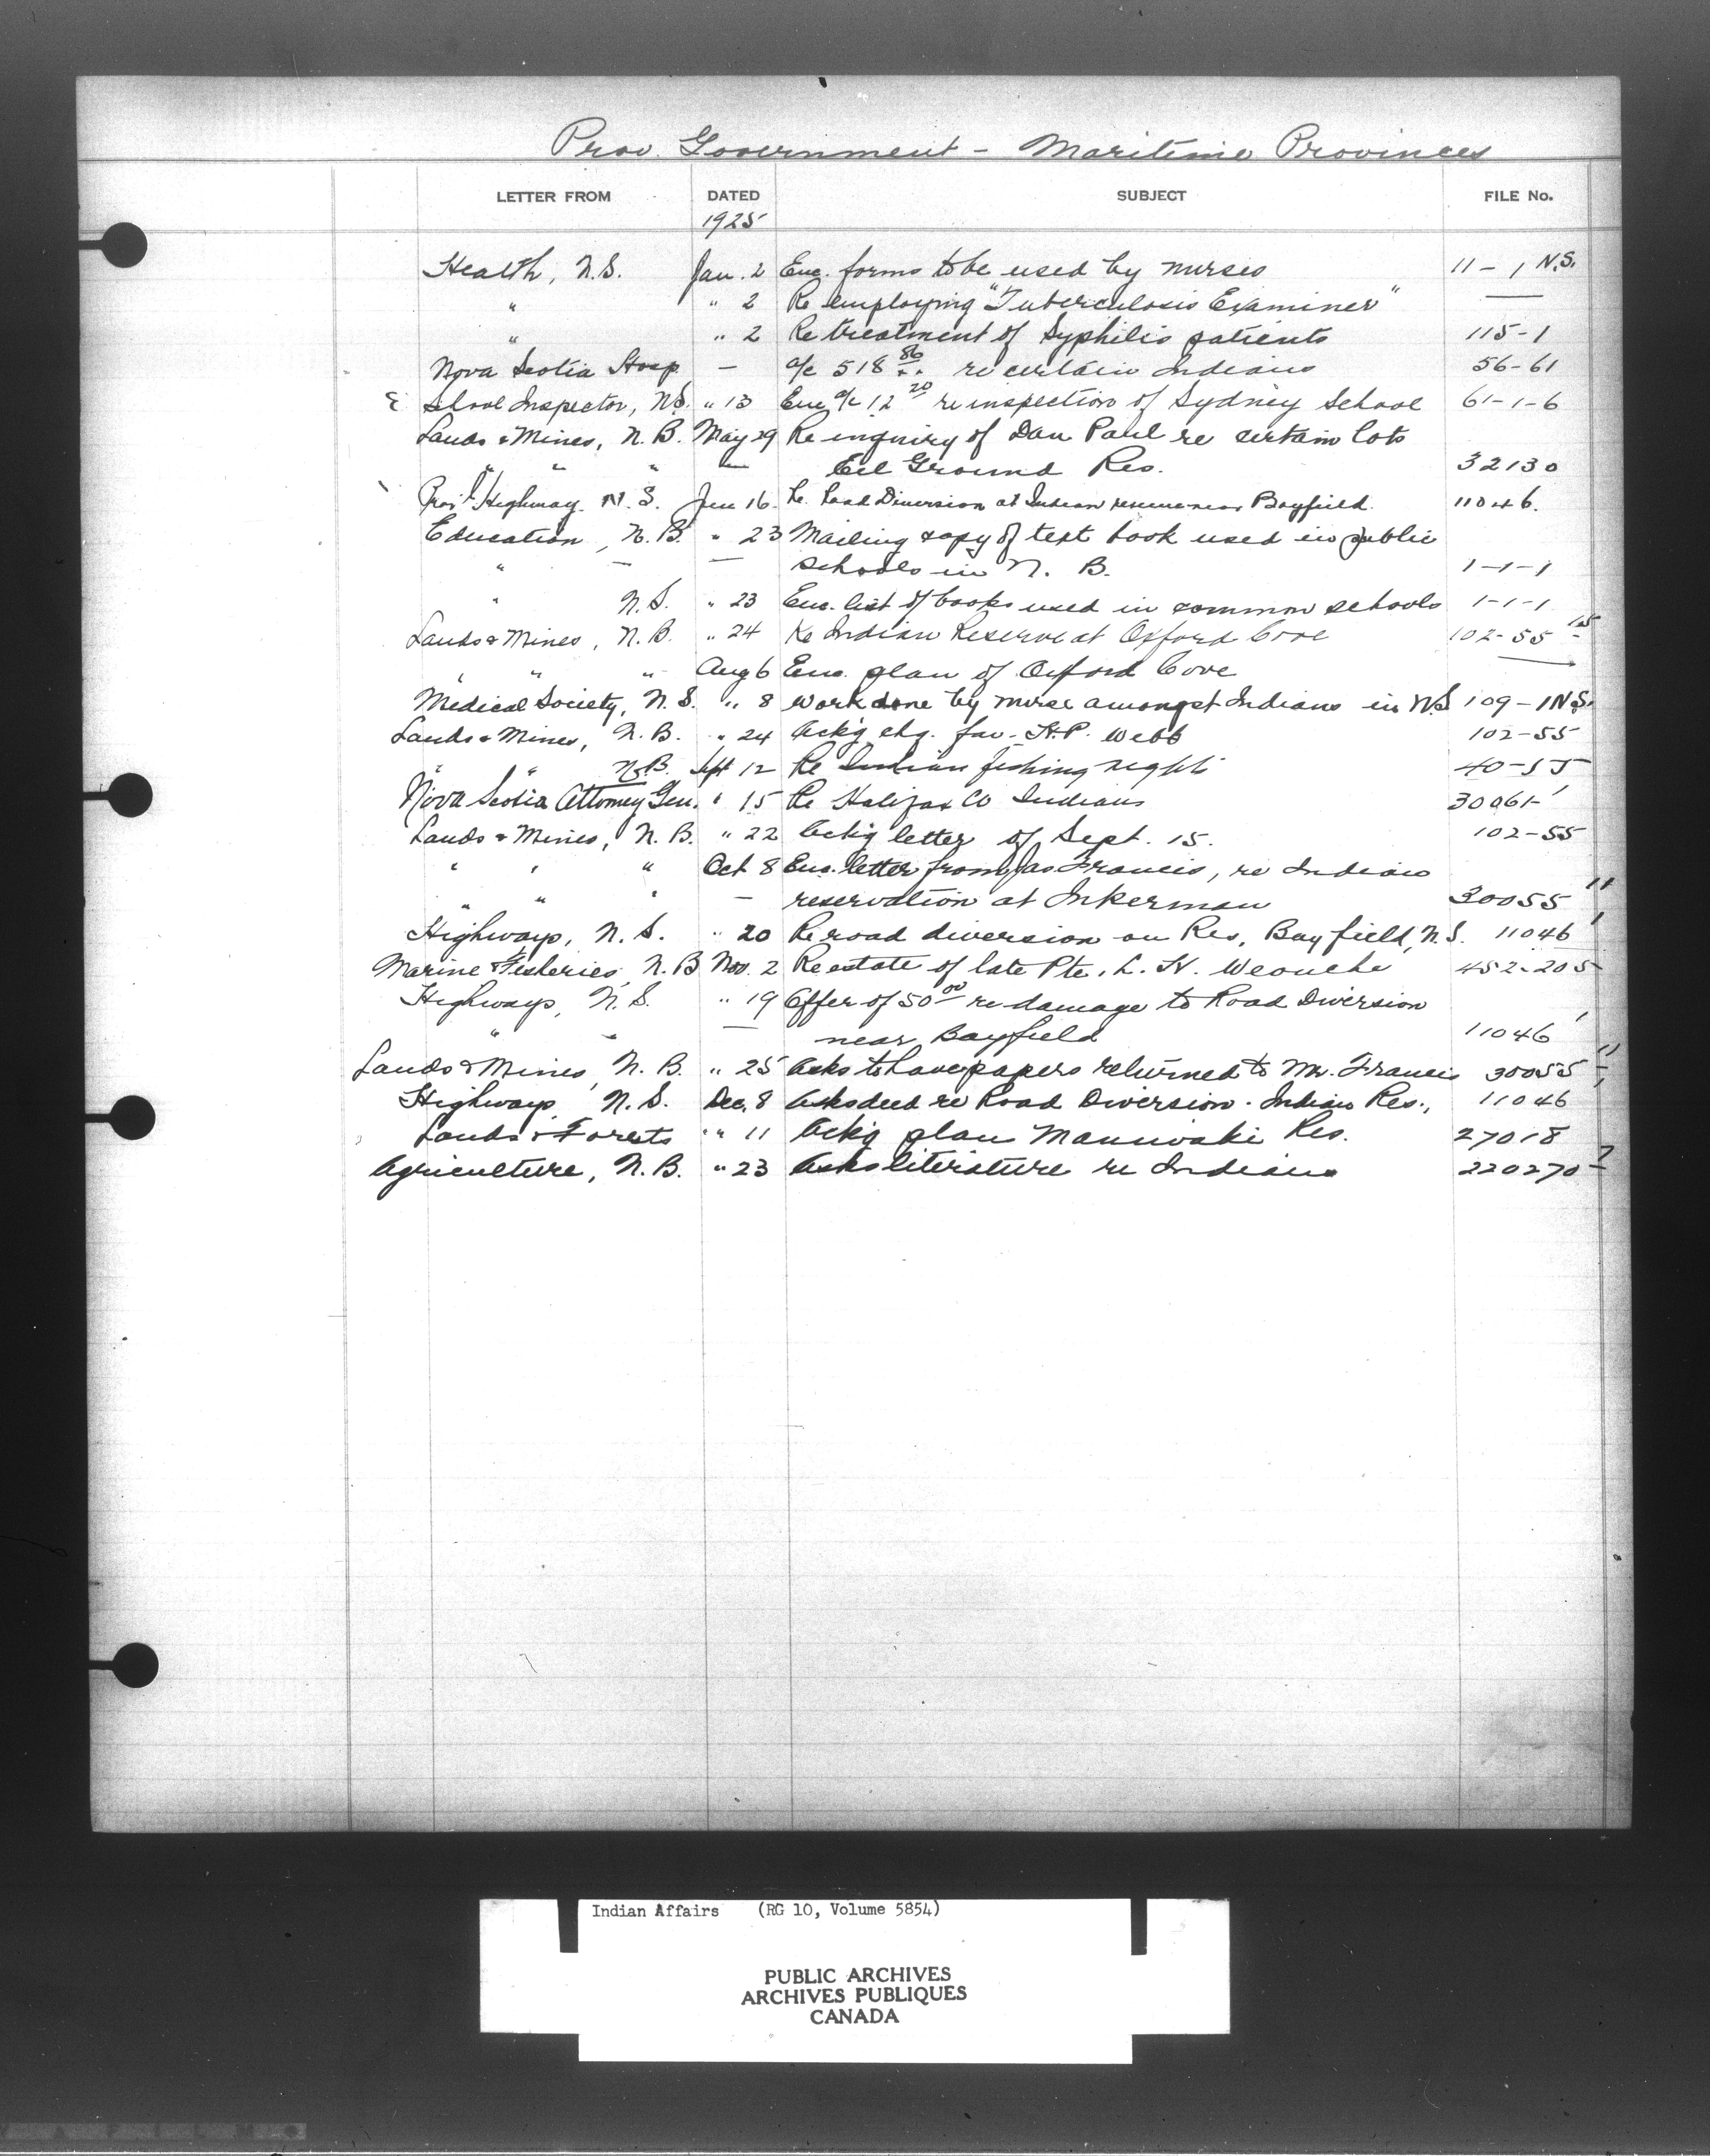 Prov. Government - Maritime Provinces
LETTER FROM DATED SUBJECT FILE No.
1925
Health, N.S. Jan. 2 Enc. forms to be used by nurses 11-1 N.S.
" " 2 Re employing "Tuberculosis Examiner" —
" " 2 Re treatment of Syphilis patients 115-1
Nova Scotia Hosp. — a/c 518 86 re certain Indians 56-61
School Inspector, N.S. " 13 Enc a/c 12 20 re inspection of Sydney School 61-1-6
Lands & Mines, N.B. May 29 Re inquiry of Dan Paul re certain lots
" " " — Eel Ground Res. 32130
Prov'l Highway N.S. Jun 16. Re. Road Diversion at Indian reserve near Bayfield. 11046.
Education, N.B. " 23 Mailing copy of text book used in public
" — — schools in N.B. 1-1-1
" N.S. " 23 Enc. list of books used in common schools 1-1-1
Lands & Mines, N.B. " 24 Re Indian Reserve at Oxford Cove 102-55
" " " Aug 6 Enc. plan of Oxford Cove —
Medical Society, N.S. " 8 Work done by nurse amongst Indians in N.S 109-1N.S.
Lands & Mines, N.B. " 24 Ack'g chq. fav. H.P. Webb 102-55
" " N.B. Sept 12 Re Indian fishing right 40-55
Nova Scotia Attorney Gen. " 15 Re Halifax Co Indians 30061-1
Lands & Mines, N.B. " 22 Ack'g letter of Sept. 15. 102-55
" " " Oct 8 Enc. letter from Jas Francis, re Indian
" " " — reservation at Inkerman 30055 11
Highways, N.S. " 20 Re road diversion on Res, Bayfield, N.S. 11046 1
Marine & Fisheries, N.B Nov. 2 Re estate of late Pte. L. H. 452-205
Highways, N.S. " 19 Offer of 50 00 re damage to Road Diversion
" " — near Bayfield 11046 1
Lands & Mines, N.B. " 25 Asks to have papers returned to Mr. Francis 30055 11
Highways, N.S. Dec. 8 Asks deed re Road Diversion. Indian Res., 11046 1
Lands & Forests " 11 Ack'g plan Maniwaki Res. 27018
Agriculture, N.B. " 23 Asks literature re Indians 220270-7
Indian Affairs (RG 10, Volume 5854)
PUBLIC ARCHIVES
ARCHIVES PUBLIQUES
CANADA